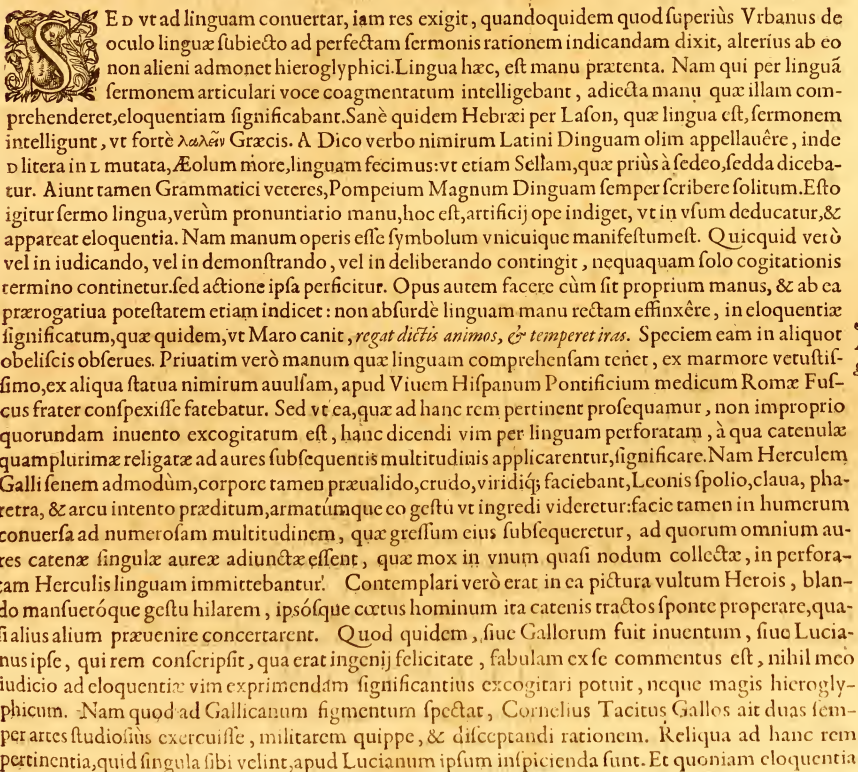 SED vt ad linguam conuertar, iam res exigit, quandoquidem quod ſuperiùs Vrbanus de
oculo linguæ ſubiecto ad perfectam ſermonis rationem indicandam dixit, alterius ab eo
non alieni admonet hieroglyphici. Lingua hæc, eſt manu prætenta. Nam qui per linguā
ſermonem articulari voce coagmentatum intelligebant, adiecta manu quæ illam com-
prehenderet, eloquentiam ſignificabant. Sanè quidem Hebræi per Laſon, quæ lingua eſt, ſermonem
intelligunt, vt fortè λαλεῖν Græcis. A Dico verbo nimirum Latini Dinguam olim appellauêre, inde
D litera in L mutata, Æolum more, linguam fecimus: vt etiam Sellam, quæ priùs à ſedeo, ſedda diceba-
tur. Aiunt tamen Grammatici veteres, Pompeium Magnum Dinguam ſemper ſcribere ſolitum. Eſto
igitur ſermo lingua, verùm pronuntiatio manu, hoc eſt, artificij ope indiget, vt in vſum deducatur, &
appareat eloquentia. Nam manum operis eſſe ſymbolum vnicuique manifeſtum eſt. Quicquid verò
vel in iudicando, vel in demonſtrando, vel in deliberando contingit, nequaquam ſolo cogitationis
termino continetur. ſed actione ipſa perficitur. Opus autem facere cùm ſit proprium manus, & ab ea
prærogatiua poteſtatem etiam indicet: non abſurdè linguam manu rectam effinxêre, in eloquentiæ
ſignificatum, quæ quidem, vt Maro canit, regat dictis animos, & temperet iras. Speciem eam in aliquot
obeliſcis obſerues. Priuatim verò manum quæ linguam comprehenſam tenet, ex marmore vetuſtiſ-
ſimo, ex aliqua ſtatua nimirum auulſam, apud Viuem Hiſpanum Pontificium medicum Romæ Fuſ-
cus frater conſpexiſſe fatebatur. Sed vt ea, quæ ad hanc rem pertinent proſequamur, non improprio
quorundam inuento excogitatum eſt, hanc dicendi vim per linguam perforatam, à qua catenulæ
quamplurimæ religatæ ad aures ſubſequentis multitudinis applicarentur, ſignificare. Nam Herculem
Galli ſenem admodùm, corpore tamen præualido, crudo, viridiq; faciebant, Leonis ſpolio, claua, pha-
retra, & arcu intento præditum, armatúmque eo geſtu vt ingredi videretur: facie tamen in humerum
conuerſa ad numeroſam multitudinem, quæ greſſum eius ſubſequeretur, ad quorum omnium au-
res catenæ ſingulæ aureæ adiunctæ eſſent, quæ mox in vnum quaſi nodum collectæ, in perfora-
tam Herculis linguam immittebantur. Contemplari verò erat in ea pictura vultum Herois, blan-
do manſuetóque geſtu hilarem, ipsóſque cœtus hominum ita catenis tractos ſponte properare, qua-
ſi alius alium præuenire concertarent. Quod quidem, ſiue Gallorum fuit inuentum, ſiue Lucia-
nus ipſe, qui rem conſcripſit, qua erat ingenij felicitate, fabulam ex ſe commentus eſt, nihil meo
iudicio ad eloquentiæ vim exprimendam ſignificantius excogitari potuit, neque magis hierogly-
phicum. Nam quod ad Gallicanum figmentum ſpectat, Cornelius Tacitus Gallos ait duas ſem-
per artes ſtudioſiùs exercuiſſe, militarem quippe, & diſceptandi rationem. Reliqua ad hanc rem
pertinentia, quid ſingula ſibi velint, apud Lucianum ipſum inſpicienda ſunt. Et quoniam eloquentia